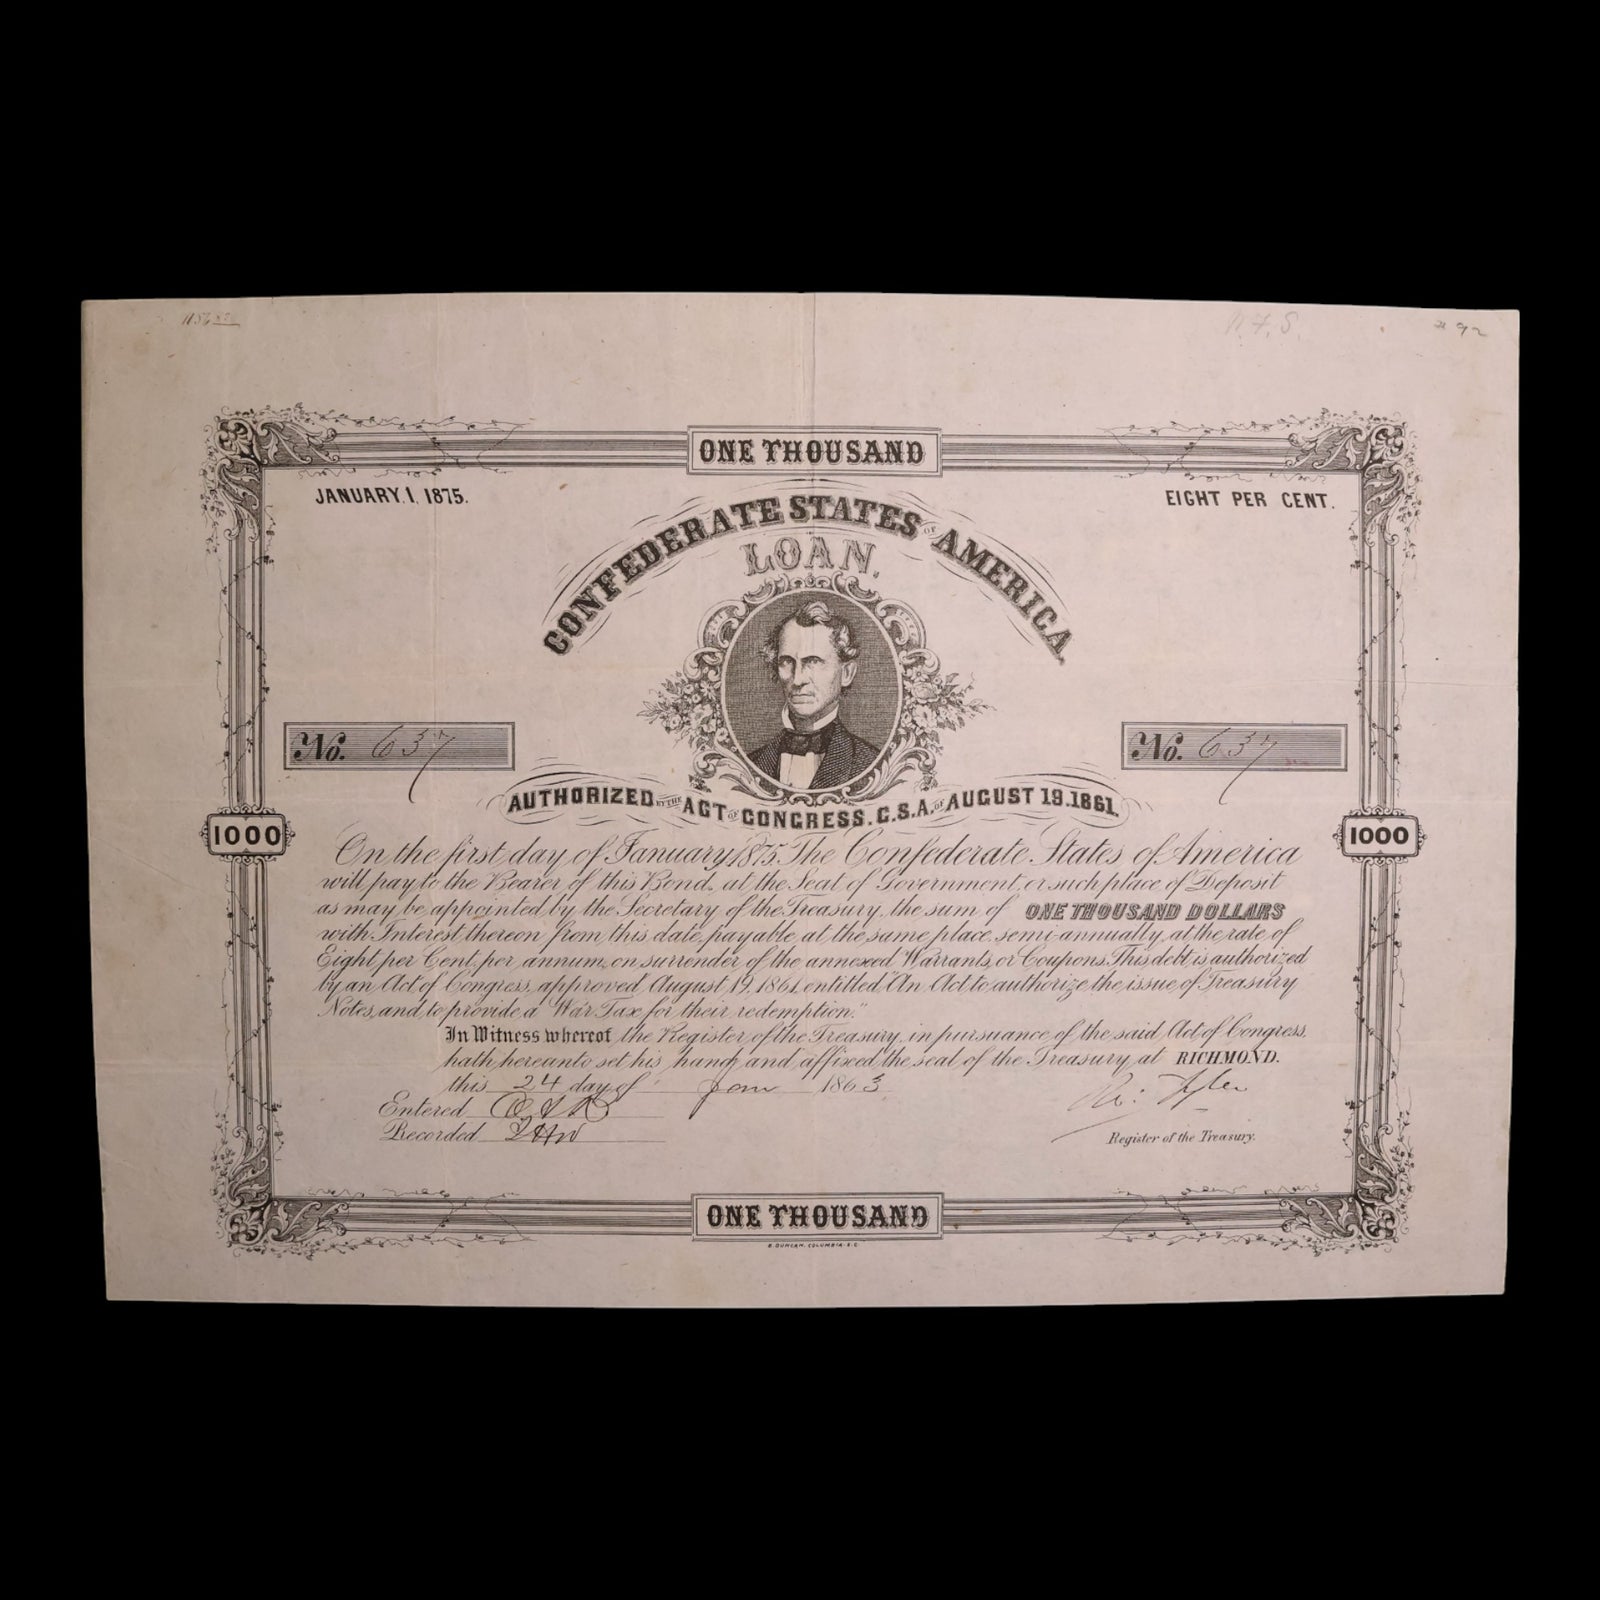 # 92
ONE THOUSAND
JANUARY. 1, 1875.
EIGHT PER CENT.
CONFEDERATE STATES OF AMERICA
LOAN.
No. 637
No. 637
AUTHORIZED BY THE ACT OF CONGRESS. C.S.A. OF AUGUST 19. 1861.
1000
1000
On the first day of January 1875, The Confederate States of America
will pay to the Bearer of this Bond, at the Seat of Government, or such place of Deposit
as may be appointed by the Secretary of the Treasury, the sum of ONE THOUSAND DOLLARS
with Interest thereon from this date, payable at the same place, semi-annually, at the rate of
Eight per Cent. per annum, on surrender of the annexed Warrants, or Coupons. This debt is authorized
by an Act of Congress, approved August 19, 1861, entitled "An Act to authorize the issue of Treasury
Notes, and to provide a War Tax for their redemption."
In Witness whereof the Register of the Treasury, in pursuance of the said Act of Congress,
hath hereunto set his hand, and affixed the seal of the Treasury, at RICHMOND.
this 24 day of Jany 1863
Ro: Tyler
Entered
Recorded
Register of the Treasury.
ONE THOUSAND
B. DUNCAN, COLUMBIA. S.C.